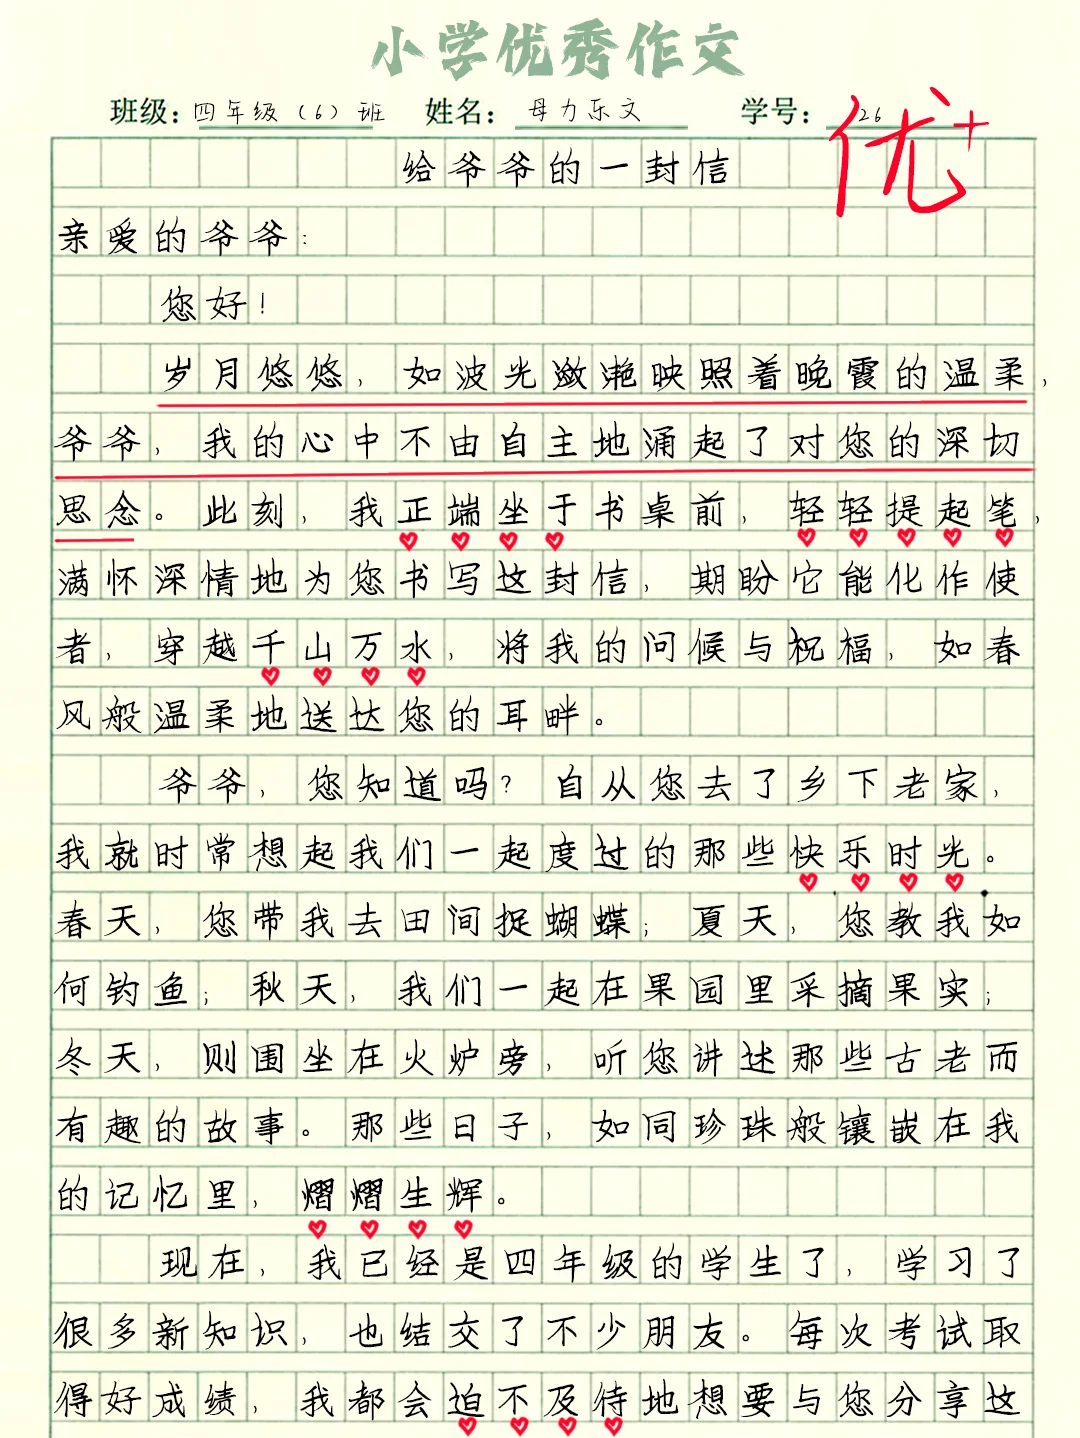 小学优秀作文
班级：四年级（6）班 姓名：母力乐文 学号：26
优+
给爷爷的一封信
亲爱的爷爷：
您好！
岁月悠悠，如波光潋滟映照着晚霞的温柔，
爷爷，我的心中不由自主地涌起了对您的深切
思念。此刻，我正端坐于书桌前，轻轻提起笔，
满怀深情地为您书写这封信，期盼它能化作使
者，穿越千山万水，将我的问候与祝福，如春
风般温柔地送达您的耳畔。
爷爷，您知道吗？自从您去了乡下老家，
我就时常想起我们一起度过的那些快乐时光。
春天，您带我去田间捉蝴蝶；夏天，您教我如
何钓鱼；秋天，我们一起在果园里采摘果实；
冬天，则围坐在火炉旁，听您讲述那些古老而
有趣的故事。那些日子，如同珍珠般镶嵌在我
的记忆里，熠熠生辉。
现在，我已经是四年级的学生了，学习了
很多新知识，也结交了不少朋友。每次考试取
得好成绩，我都会迫不及待地想要与您分享这